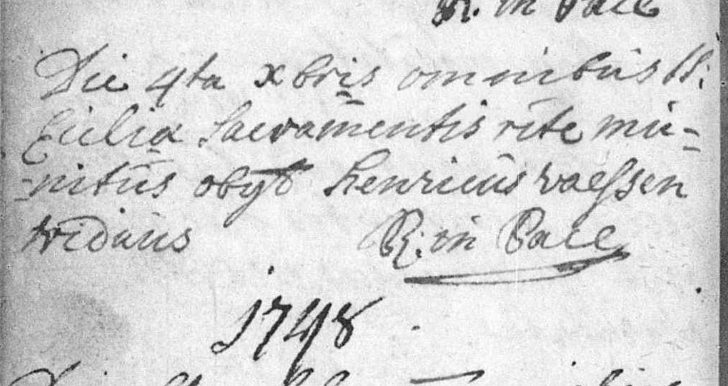 R. in Pace
Die 4ta xbris omnibus SS:
Ecclia Sacramentis rite mu-
-nitus obyt henricus vaessen
viduus R: in Pace
1748
Die